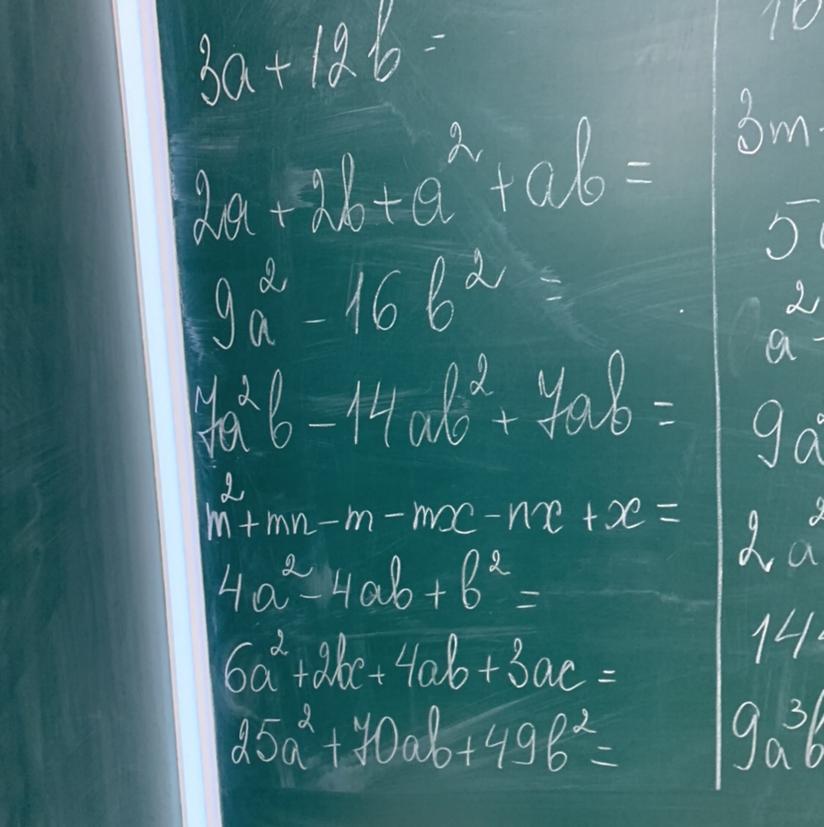 3a + 12b =
2a + 2b + a² + ab =
9a² - 16b² =
7a²b - 14ab² + 7ab =
m² + mn - m - mx - nx + x =
4a² - 4ab + b² =
6a² + 2bc + 4ab + 3ac =
25a² + 70ab + 49b² =
3m
a²
9a
2a²
14
9a³b